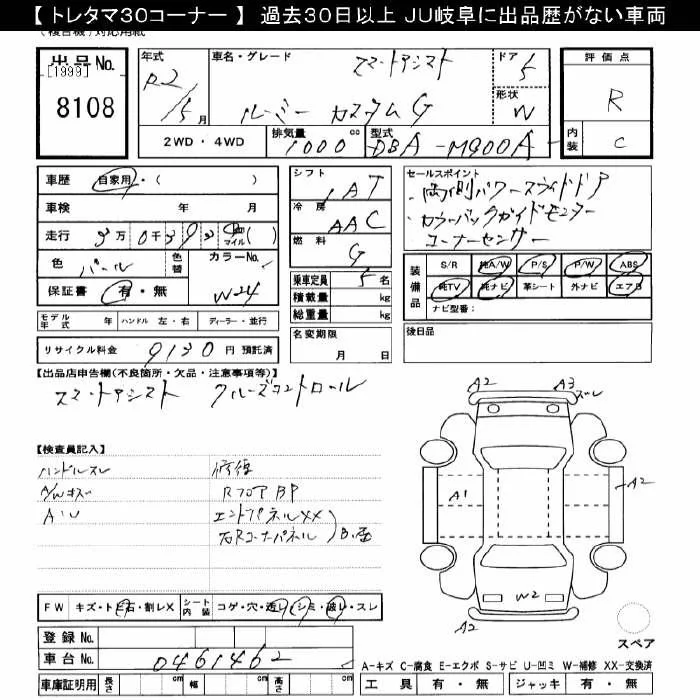 【 トレタマ30コーナー 】 過去30日以上 JU岐阜に出品歴がない車両
出品No.
[1999]
8108
年式 R2/5月
車名・グレード スマートアシスト
ルーミー カスタムG
ドア 5
形状 W
評価点 R
内装 C
2WD・4WD
排気量 1000cc
型式 DBA-M900A
車歴 自家用・( )
車検 年 月
走行 マイル( )
色 パール
色替
カラーNo. W24
保証書 有・無
シフト IAT
冷房 AAC
燃料 G
乗車定員 5名
積載量 kg
総重量 kg
セールスポイント
・両側パワースライドドア
・カラーバックガイドモニター
コーナーセンサー
装備品
S/R 純A/W P/S P/W ABS
純TV 純ナビ 革シート 外ナビ エアB
ナビ型番:
モデル年式 年 ハンドル 左・右 ディーラー・並行
名変期限 月 日
後日品
リサイクル料金 9130円 預託済
【出品店申告欄(不良箇所・欠品・注意事項等)】
スマートアシスト クルーズコントロール
【検査員記入】
ハンドルスレ
A/Wキズ
A・U
修復
RフロアBP
エンドパネルXX
右Rコーナーパネル
A2 A3 ズレ
A1 A2
W2
A2
スペア
FW キズ・トビ石・割レX
シート内装 コゲ・穴・透レ・シミ・破レ・スレ
登録No.
車台No. 0461462
車庫証明用 長さ cm 幅 cm 高さ cm
A-キズ C-腐食 E-エクボ S-サビ U-凹ミ W-補修 XX-交換済
工具 有・無 ジャッキ 有・無